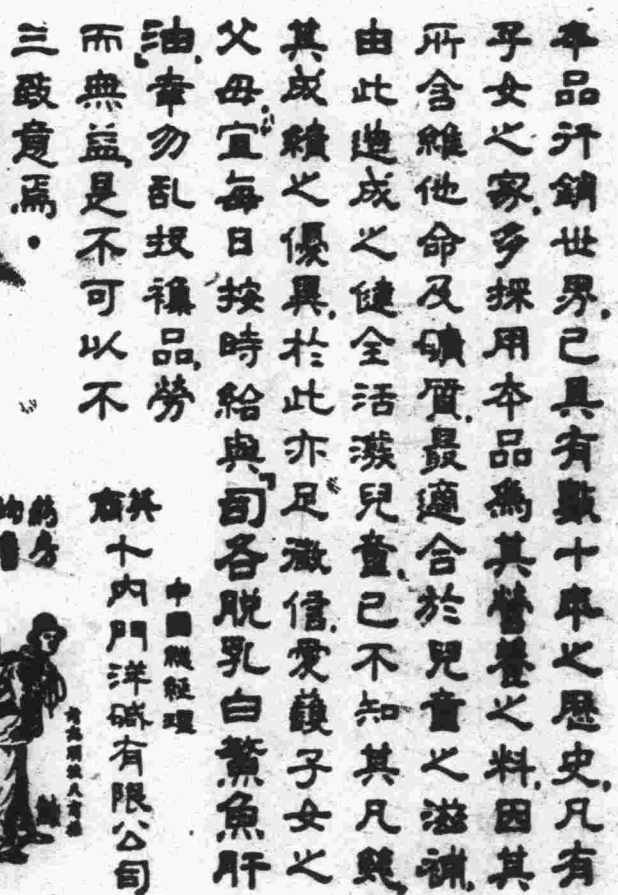 本品行銷世界,已具有數十年之歷史,凡有
子女之家,多採用本品爲其營養之料,因其
所含維他命及礦質,最適合於兒童之滋補,
由此造成之健全活潑兒童,已不知其凡幾,
其成績之優異,於此亦足徵信,愛護子女之
父母,宜每日按時給與「司各脫乳白鰵魚肝
油」,幸勿乱投襍品,勞
而無益,是不可以不
三致意焉。
中國總經理
英商卜內門洋碱有限公司
葯房
均售